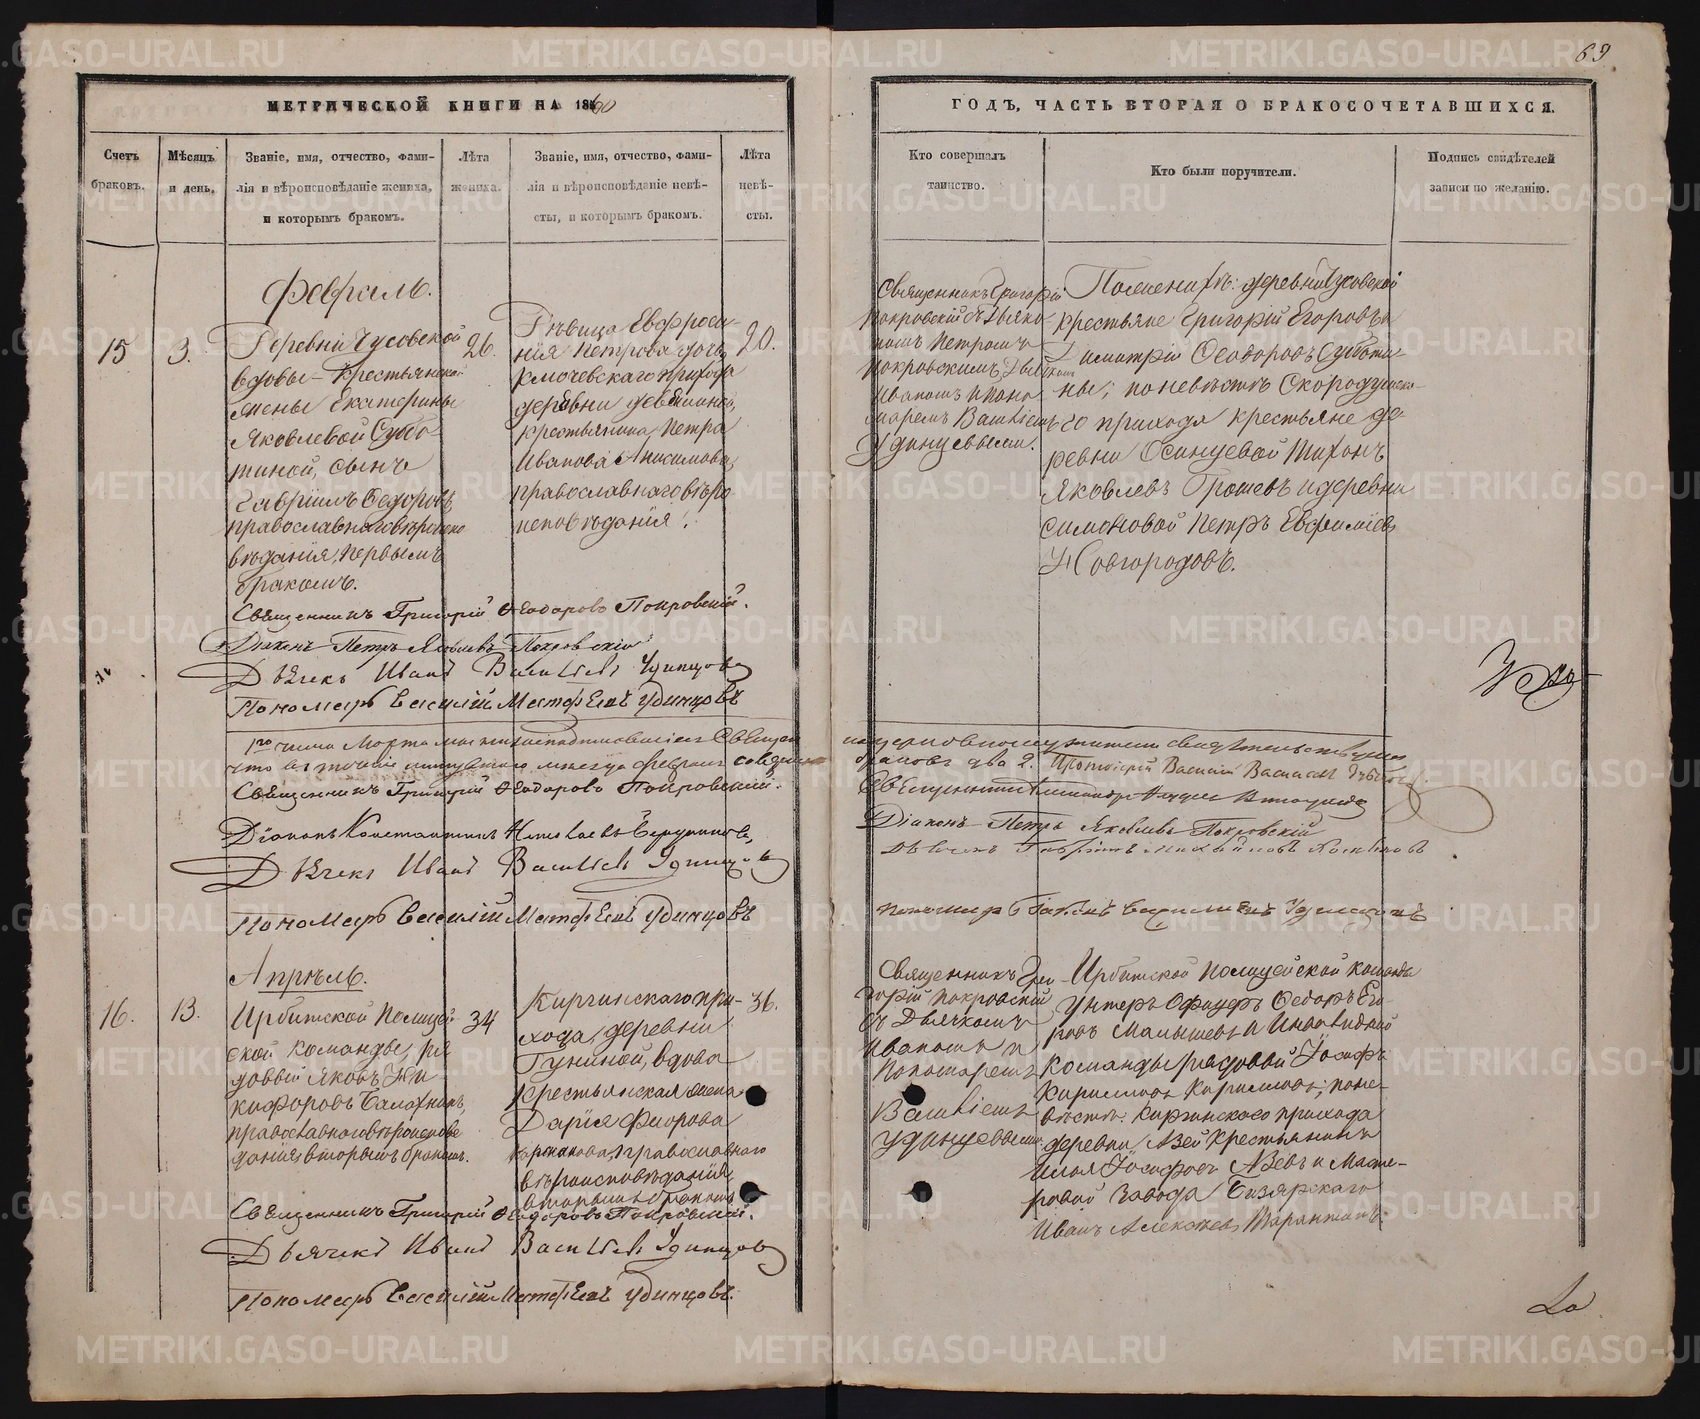 69
МЕТРИЧЕСКОЙ КНИГИ НА 1860
ГОДЪ, ЧАСТЬ ВТОРАЯ О БРАКОСОЧЕТАВШИХСЯ.
Счетъ
браковъ.
Мѣсяцъ
и день.
Званіе, имя, отчество, фами-
лія и вѣроисповѣданіе жениха,
и которымъ бракомъ.
Лѣта
жениха.
Званіе, имя, отчество, фами-
лія и вѣроисповѣданіе невѣ-
сты, и которымъ бракомъ.
Лѣта
невѣ-
сты.
Кто совершалъ
таинство.
Кто были поручители.
Подпись свидѣтелей
записи по желанію.
Февраль.
15
3.
Деревни Чусовской
вдовы крестьянской
жены Екатерины
Яковлевой Суббо-
тиной, сынъ
Гавріилъ Ѳедоровъ
православнаго вѣроиспо
вѣданія, первымъ
бракомъ.
26.
Дѣвица Евфроси-
нія Петрова дочь
Ключевскаго прихода
деревни
крестьянина Петра
Иванова Анисимова,
православнаго вѣро
исповѣданія.
20.
Священникъ Григорій
Покровскій съ Діяко
номъ Петромъ
Покровскимъ, Дьячкомъ
Иваномъ и Поно
маремъ Василіемъ
Удинцовыми.
По женихѣ: деревни Чусовской
крестьяне Григорій Егоровъ и
Димитрій Ѳеодоровъ Субботи-
ны; по невѣстѣ Скородумска-
го прихода крестьяне де-
ревни Осинцевой Тихонъ
Яковлевъ Грошевъ и деревни
Симоновой Петръ Евфиміевъ
Новгородовъ.
Священникъ Григорій Ѳеодоровъ Покровскій.
Діаконъ Петръ Яковлевъ Покровскій
Дьячекъ Иванъ Васильевъ Удинцовъ
Пономарь Василій Матфеевъ Удинцовъ
1го числа Марта мы
что въ теченіе минувшаго мѣсяца февраля
браковъ два 2. Протоіерей Василій
Священникъ Григорій Ѳеодоровъ Покровскій.
Священникъ Александръ
Діаконъ Константинъ Николаевъ
Діаконъ Петръ Яковлевъ Покровскій
Дьячекъ Иванъ Васильевъ Удинцовъ
Пономарь Василій Матфеевъ Удинцовъ
Апрѣль.
16.
13.
Ирбитской Полицей
ской команды, ря
довый Яковъ Ни
кифоровъ
православнаго вѣроисповѣ
данія, вторымъ бракомъ.
34
Киргинскаго при-
хода, деревни
Гуниной, вдова
Крестьянская жена
Дарія
православнаго
вѣроисповѣданія
вторымъ бракомъ
36.
Священникъ Гри
горій Покровскій
съ Дьячкомъ
Иваномъ и
Пономаремъ
Василіемъ
Удинцовыми.
Ирбитской Полицейской команды
Унтеръ Офицеръ Ѳедоръ Его-
ровъ Малышевъ и Инвалидной
команды рядовый Іосифъ
Кирилловъ Кирилловъ; по не-
вѣстѣ: Киргинскаго прихода
деревни Азевой Крестьянинъ
Илья Іосифовъ Азевъ и Масте-
ровой завода Бизярскаго
Иванъ Алексѣевъ
Священникъ Григорій Ѳеодоровъ Покровскій.
Дьячекъ Иванъ Васильевъ Удинцовъ
Пономарь Василій Матфеевъ Удинцовъ.
METRIKI.GASO-URAL.RU